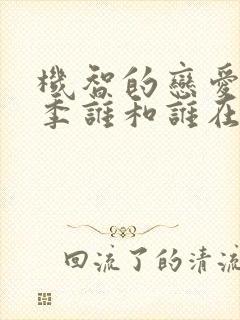 機智的戀愛
季誰和誰在
回流了的清流